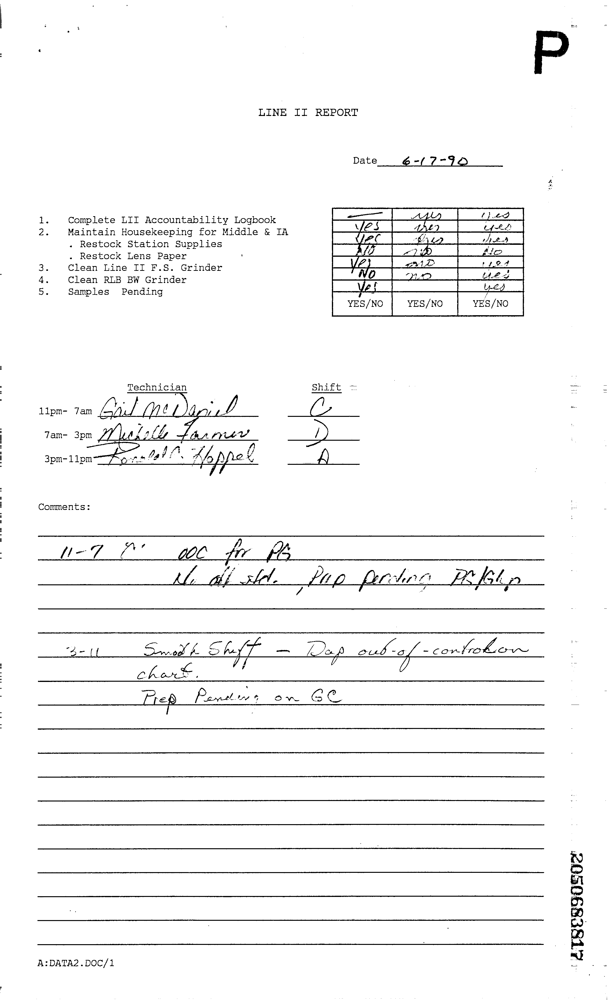 P
LINE II REPORT
Date 6-17-90
1. Complete LII Accountability Logbook
2. Maintain Housekeeping for Middle & IA
. Restock Station Supplies
. Restock Lens Paper
3. Clean Line II F.S. Grinder
4. Clean RLB BW Grinder
5. Samples Pending
— yes yes
yes yes yes
yes yes yes
NO no NO
yes no yes
NO no yes
yes yes
YES/NO YES/NO YES/NO
Technician Shift
11pm- 7am Gail McDaniel C
7am- 3pm Michelle Farmer D
3pm-11pm Hoppel A
Comments:
11-7 OOC for PG
std. Prep pending PG/
3-11 Smooth Shift - Dap out-of-control on
chart.
Prep Pending on GC
A:DATA2.DOC/1
2050683817